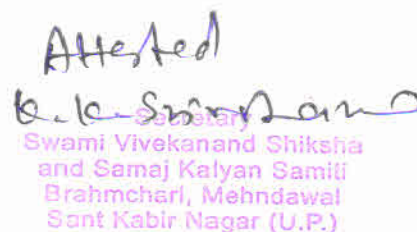 Attested
K. K. Srivastava
Secretary
Swami Vivekanand Shiksha
and Samaj Kalyan Samiti
Brahmchari, Mehndawal
Sant Kabir Nagar (U.P.)